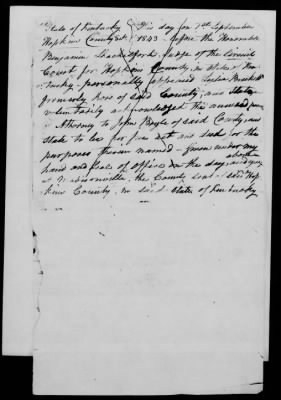 State of Kentucky This day for 1st September
Hopkins County Sct. 1843 - before the Honorable
Benjamin Shackelford Judge of the Circuit
Court for Hopkins County, in State of Ken
tucky personally appeared
formerly here of said County, and State
voluntarily acknowledged the annexed power
of Attorney to John Boyle of said County and
state to be for his act and deed for the
purposes therein named - Given under my
hand and seal of office on the day, and year above
at Madisonville the County seat of said Hop
kins County, in said State of Kentucky